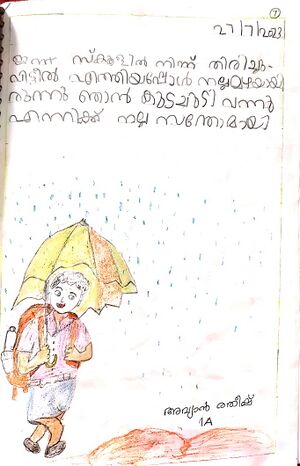 7
27/7/2023
ഇന്ന് സ്കൂളിൽ നിന്ന് തിരിച്ചു
വീട്ടിൽ എത്തിയപ്പോൾ നല്ല മഴയായി
രുന്നു ഞാൻ കുടചൂടി വന്നു
എന്നിക്ക് നല്ല സന്തോമായി
അവ്യാൻ രതീഷ്
1A